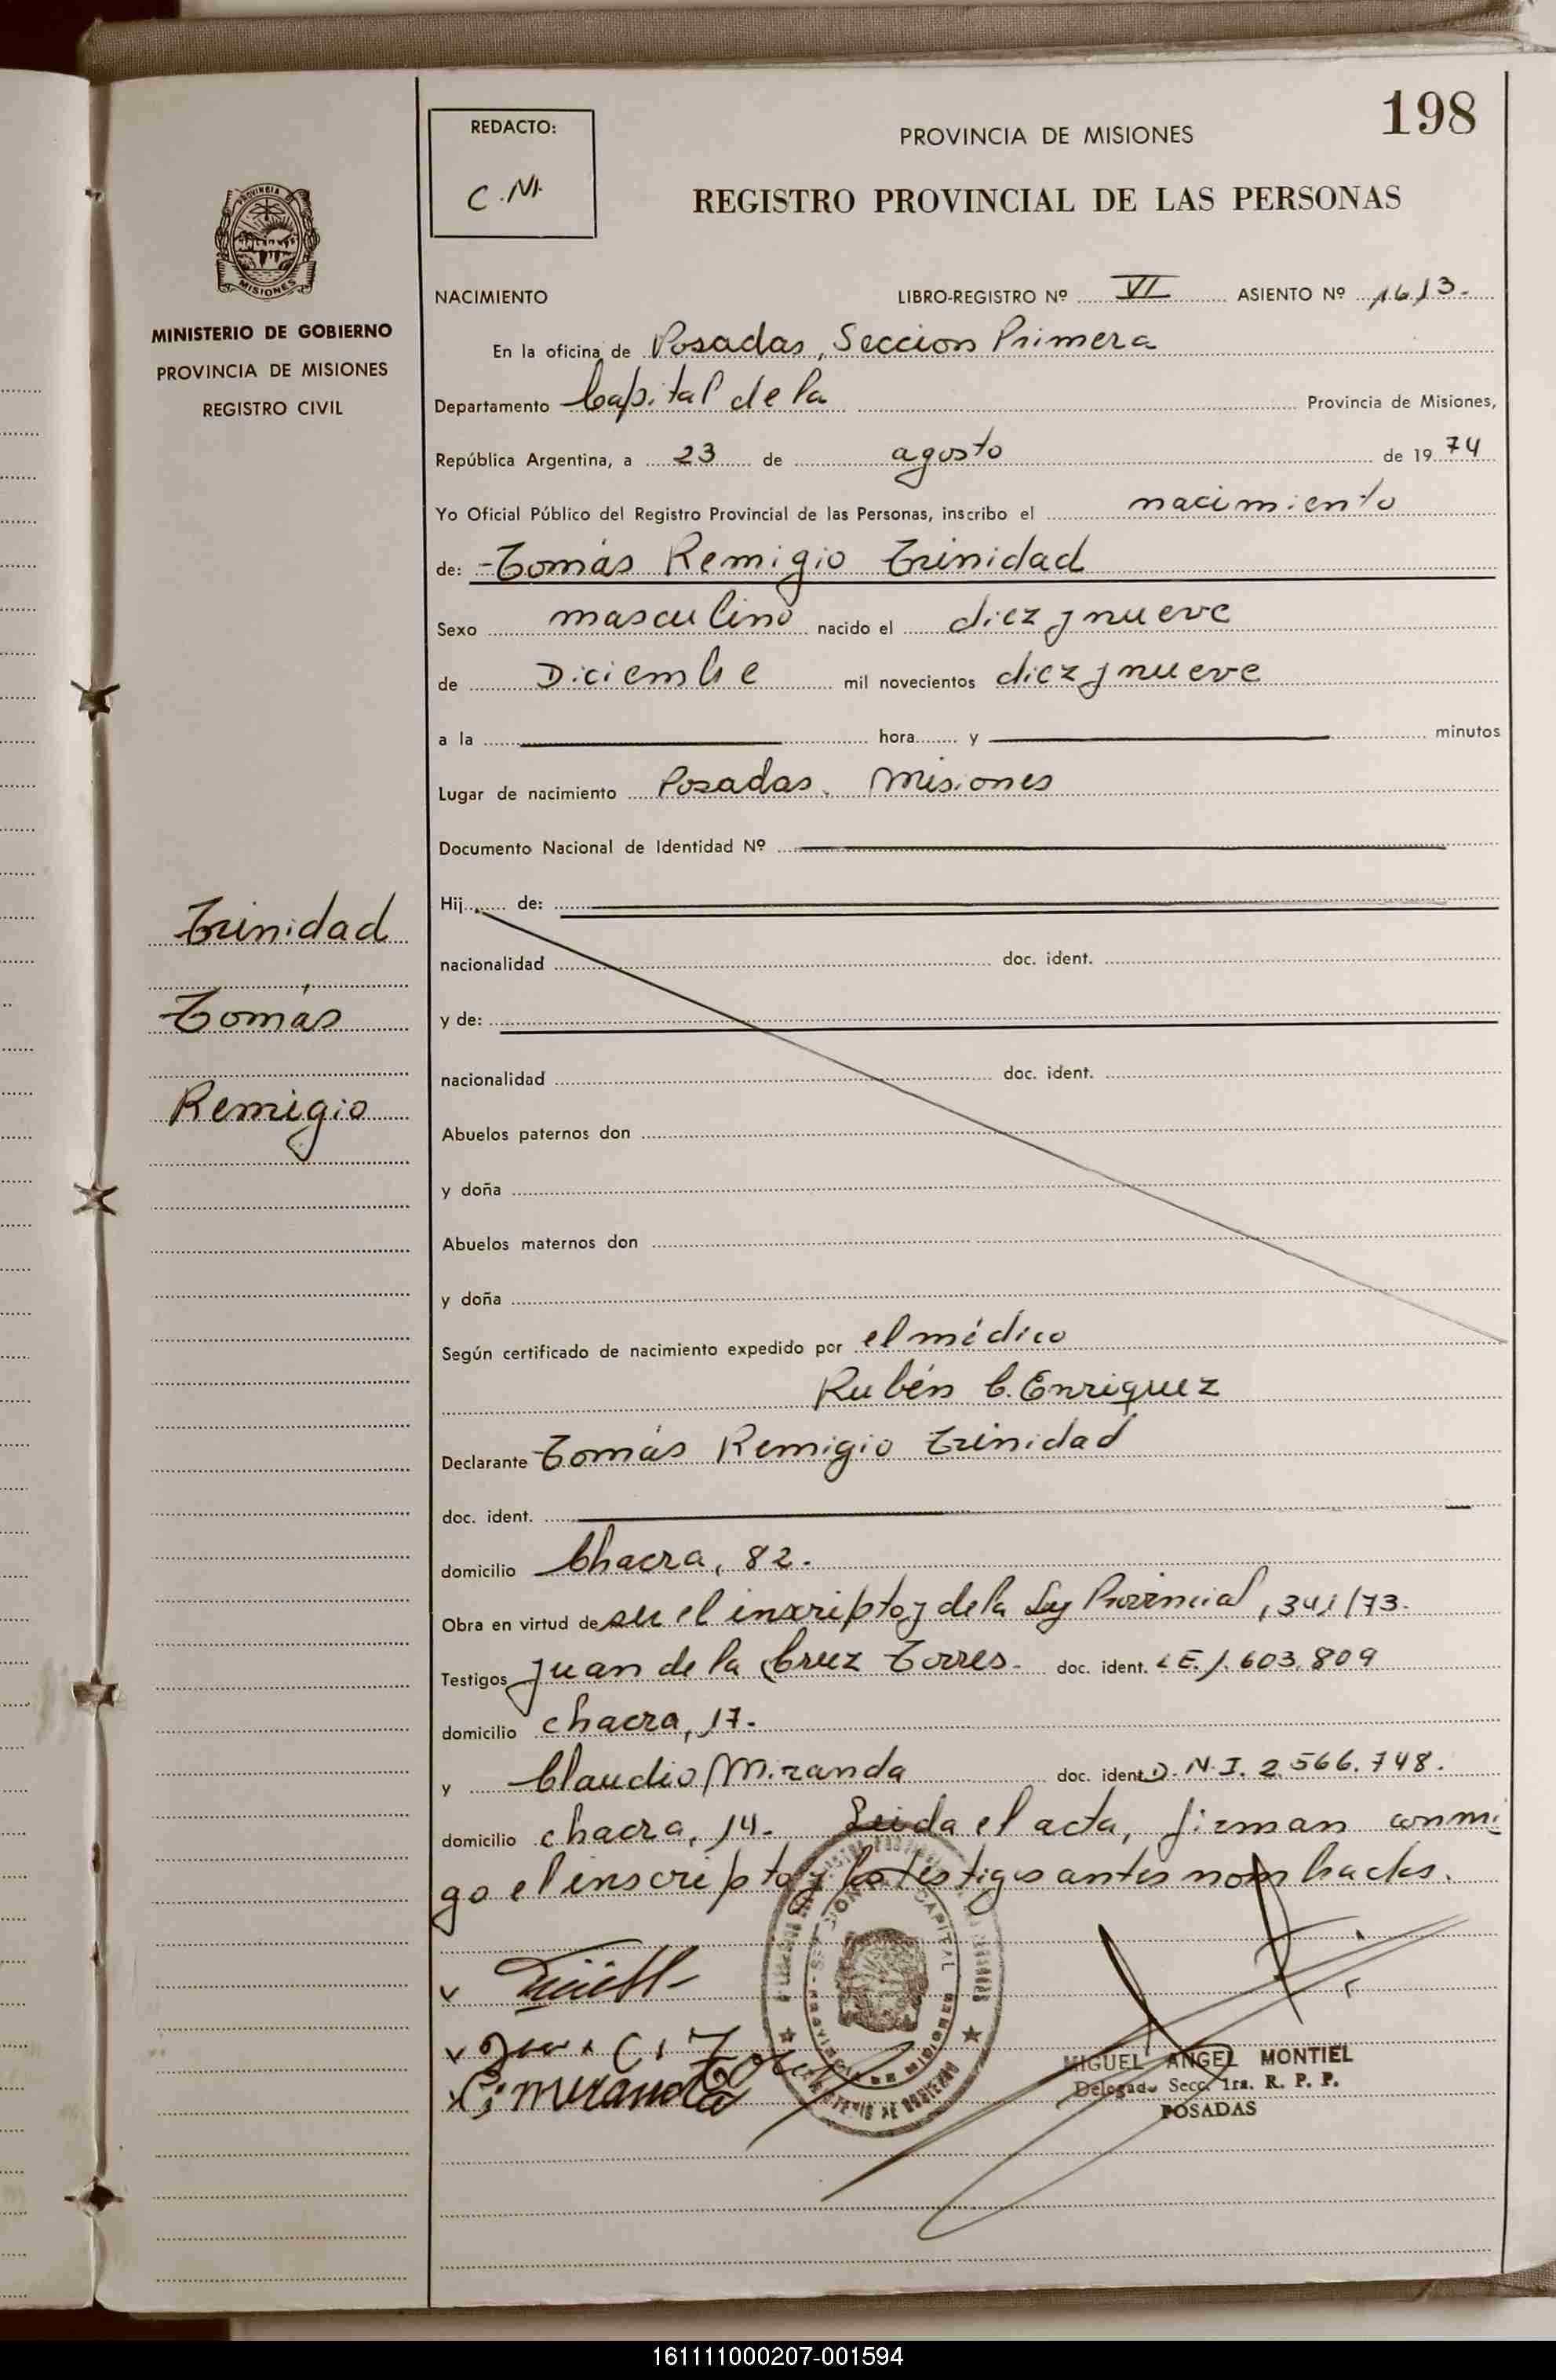 198
REDACTO:
C.M.
PROVINCIA DE MISIONES
REGISTRO PROVINCIAL DE LAS PERSONAS
PROVINCIA DE
MISIONES
MINISTERIO DE GOBIERNO
PROVINCIA DE MISIONES
REGISTRO CIVIL
NACIMIENTO LIBRO-REGISTRO Nº VI ASIENTO Nº 1613.
En la oficina de Posadas, Seccion Primera
Departamento Capital de la Provincia de Misiones,
República Argentina, a 23 de agosto de 19 74
Yo Oficial Público del Registro Provincial de las Personas, inscribo el nacimiento
de: -Tomás Remigio Trinidad
Sexo masculino nacido el diez y nueve
de Diciembre mil novecientos diez y nueve
a la hora y minutos
Lugar de nacimiento Posadas. Misiones
Documento Nacional de Identidad Nº
Trinidad
Tomás
Remigio
Hij de:
nacionalidad doc. ident.
y de:
nacionalidad doc. ident.
Abuelos paternos don
y doña
Abuelos maternos don
y doña
Según certificado de nacimiento expedido por el médico
Rubén C. Enriquez
Declarante Tomás Remigio Trinidad
doc. ident.
domicilio Chacra, 82.
Obra en virtud de ser el inscripto y de la Ley Provincial, 341/73.
Testigos Juan de la Cruz Torres. doc. ident. L.E. 1.603.809
domicilio chacra, 17.
y Claudio Miranda doc. ident. D.N.I. 2.566.748.
domicilio chacra, 14. Leida el acta, firman conmi
go el inscripto y los testigos antes nombrados.
x
x Juan C. Torres
x C. Miranda
CAPITAL
MINISTERIO DE GOBIERNO
MIGUEL ANGEL MONTIEL
Delegado Secc. 1ra. R. P. P.
POSADAS
161111000207-001594